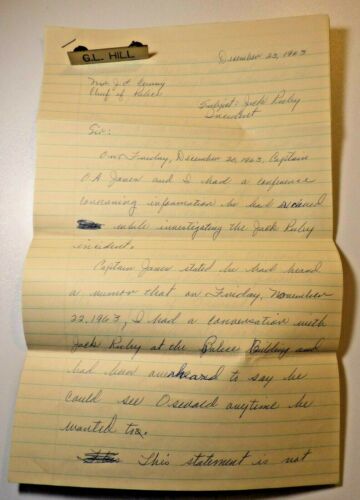 G.L. HILL
December 23, 1963
Mr. J.E. Curry
Chief of Police
Subject: Jack Ruby
Incident
Sir:
On Friday, December 20, 1963, Captain
O.A. Jones and I had a conference
concerning information he had received
while investigating the Jack Ruby
incident.
Captain Jones stated he had heard
a rumor that on Friday, November
22, 1963, I had a conversation with
Jack Ruby at the Police Building and
had been overheard to say he
could see Oswald anytime he
wanted to.
This statement is not